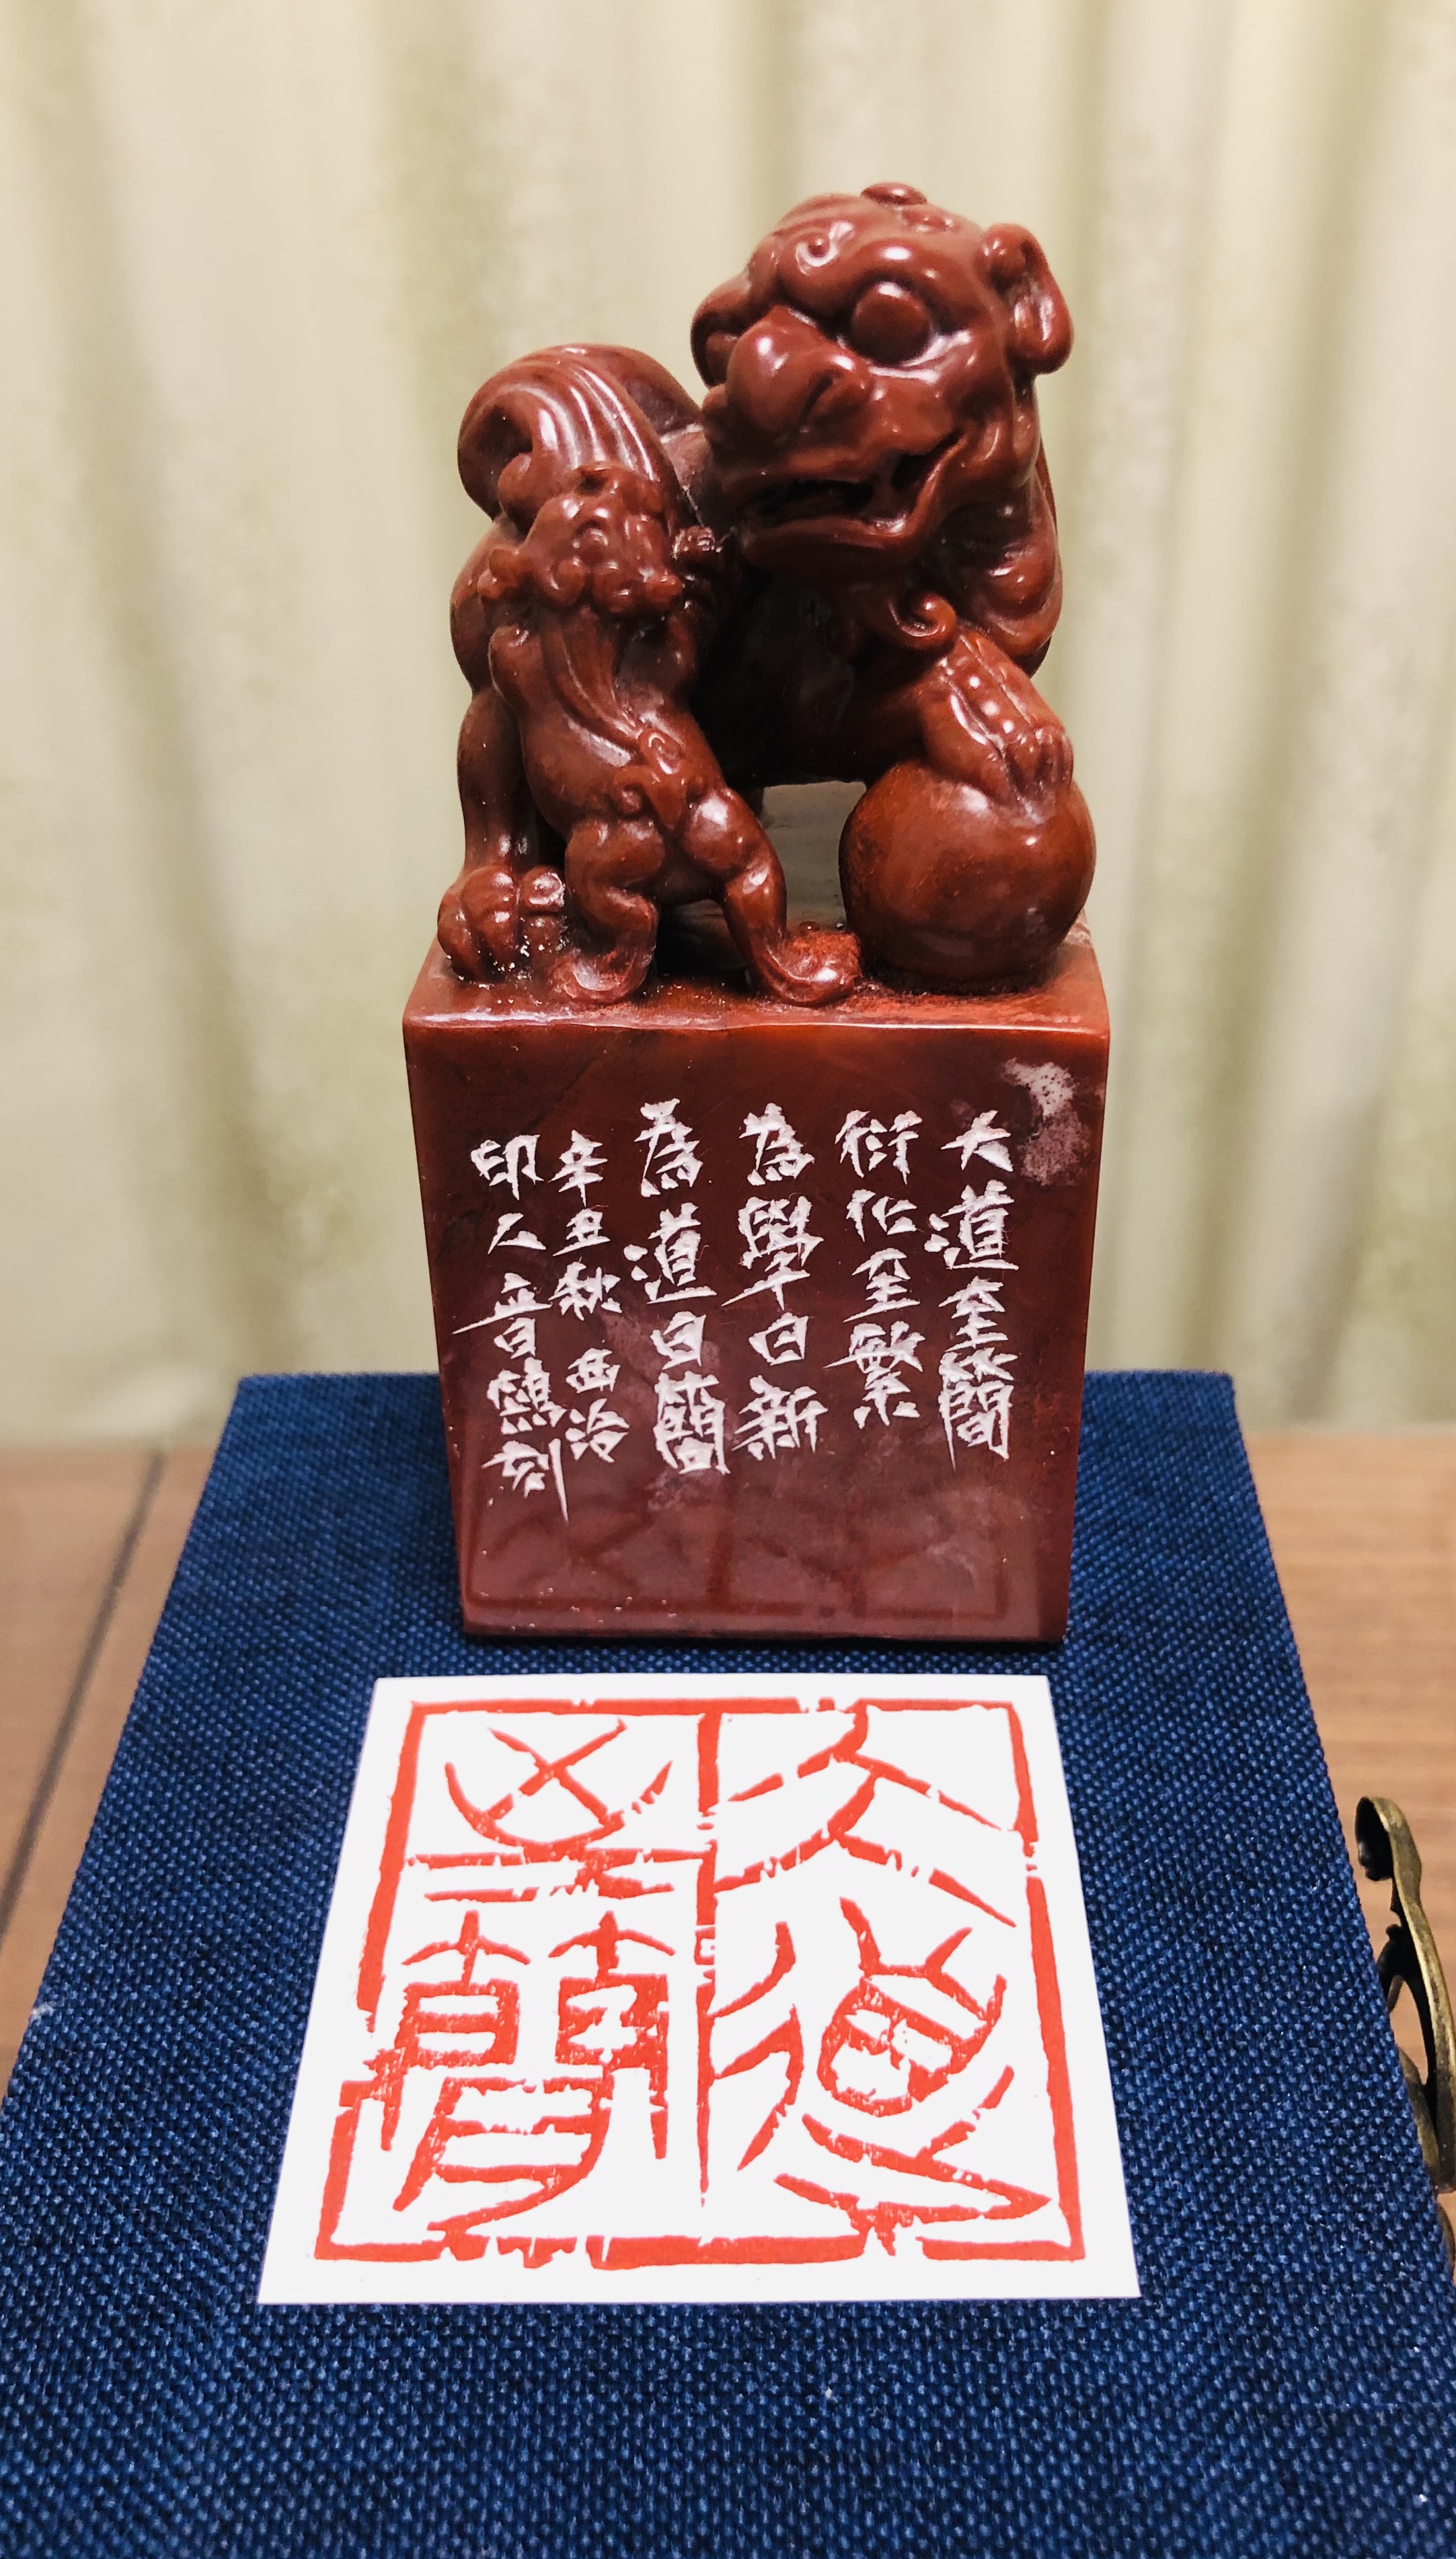 大道至簡
衍化至繁
為學日新
為道日簡
辛丑秋 西泠
印人音鶴刻
大道
至簡